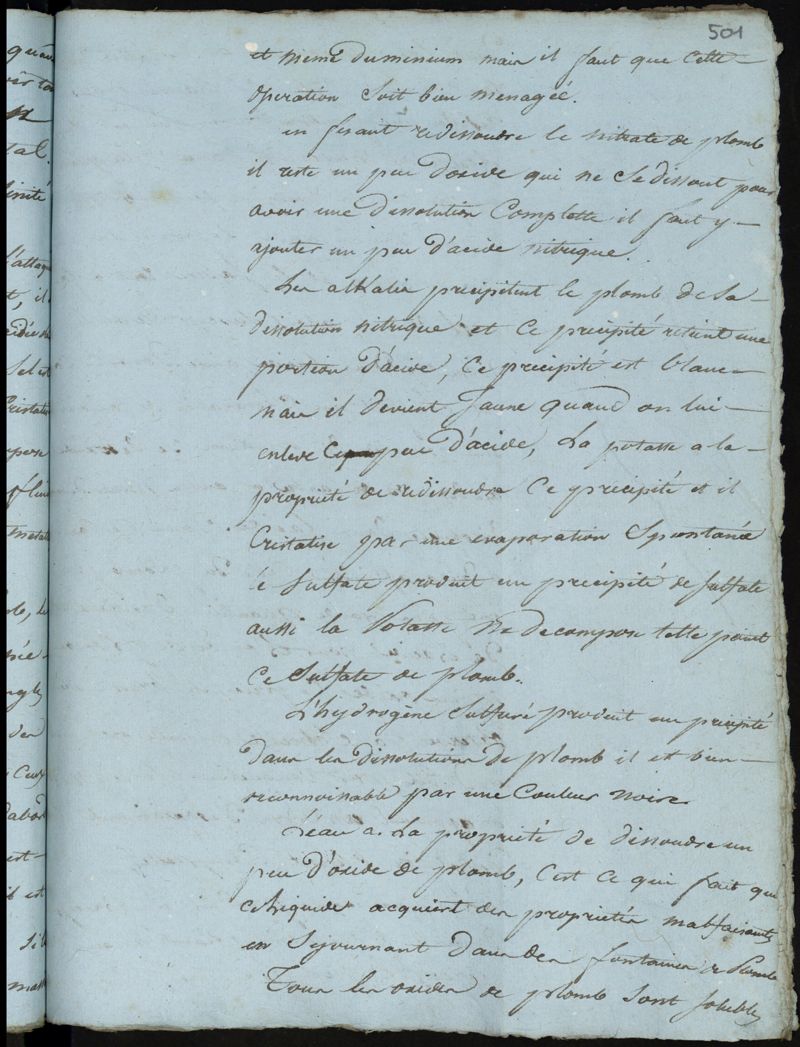 501
et meme du minium mais il faut que cette
operation soit bien menagée.
en fesant redissoudre le nitrate de plomb
il reste un peu d'oxide qui ne se dissout pour
avoir une dissolution Complette il faut y
ajouter un peu d'acide nitrique.
Les alkalis precipitent le plomb de sa
dissolution nitrique et ce precipité retient une
portion d'acide, Ce precipité est blanc
mais il devient jaune quand on lui
enleve Ce peu d'acide, La potasse a la
propriété de redissoudre Ce precipité et il
Cristalise par une evaporation Spontanée
le Sulfate produit un precipité de sulfate
aussi la Potasse ne decompose t'elle point
Ce Sulfate de plomb.
L'hydrogène Sulfuré produit un precipité
dans les dissolutions de plomb il est bien
reconnoissable par une Couleur noire
L'eau a La propriété de dissoudre un
peu d'oxide de plomb, C'est ce qui fait que
ce liquide acquiert des propriétés malfaisantes
en Sejournant dans des fontaines de Plomb
Tous les oxides de plomb sont solubles